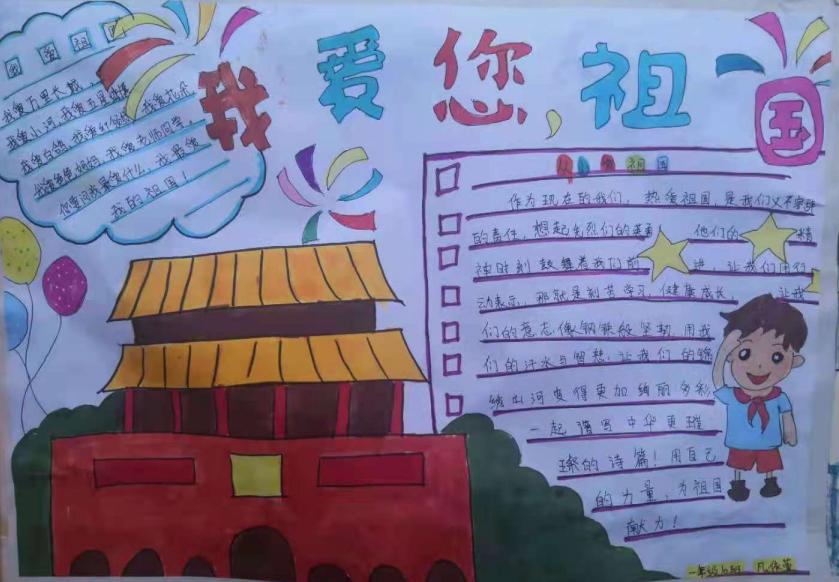 我爱您,祖国
我爱祖国
我爱万里长城,
我爱小河,我爱五星红旗
我爱白鸽,我爱红领巾,我爱花朵,
我爱爸爸妈妈,我爱老师同学,
你要问我最爱什么,我最爱
我的祖国!
爱祖国
作为现在的我们,热爱祖国,是我们义不容辞
的责任,想起先烈们的英勇 他们的 精
神时刻鼓舞着我们前 进,让我们用行
动表示,那就是刻苦学习,健康成长, 让我
们的意志像钢铁般坚韧,用我
们的汗水与智慧,让我们的锦
绣山河变得更加绚丽多彩
一起谱写中华更璀
璨的诗篇!用自己
的力量,为祖国
献力!
一年级6班 凡依萱